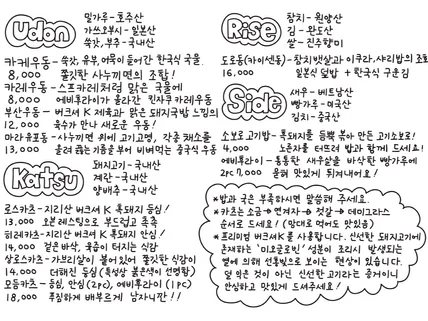 Udon
밀가루-호주산
가쓰오부시-일본산
쑥갓,부추-국내산
카케우동-쑥갓, 유부, 어묵이 들어간 한국식 국물.
8,000 쫄깃한 사누끼면의 조합!
카레우동-스프카레처럼 맑은 국물에
8,000 에비후라이가 올라간 킨사쿠카레우동
부산우동- 버크셔K 제육과 맑은 돼지국밥 느낌의
12,000 육수가 만나 새로운 우동!
마라우동-사누끼면 위에 고기고명, 각종 채소를
13,000 올려 비벼먹는 중국식 우동
Katsu
돼지고기-국내산
계란-국내산
양배추-국내산
로스카츠-지리산 버크셔K 흑돼지 등심!
13,000 오븐레스팅으로 부드럽고 촉촉
히레카츠-지리산 버크셔K 흑돼지 안심!
14,000 겉은 바삭, 육즙이 터지는 식감
상로스카츠-가브리살이 붙어있어 쫄깃한 식감이
14,000 더해진 등심(특성상 붉은색이 선명함)
모둠카츠-등심, 안심(2pc), 에비후라이(1pc)
18,000 푸짐하게 배부르게 남자니깐!!
Rise
참치-원양산
김-완도산
쌀-진주향미
도로동(카이센동)-참치뱃살과 이쿠라,샤리밥의 조화
16,000 일본식 덮밥 + 한국식 구운김
Side
새우-베트남산
빵가루-미국산
김치-중국산
소보로고밥-흑돼지를 듬뿍 볶아 만든 고기소보로!
4,000 노른자를 터뜨려 밥과 함께 드세요!
에비후라이-통통한 새우살을 바삭한 빵가루에
2pc 7,000 튀겨내어요!
*밥과 국은 부족하시면 말씀해 주세요.
*카츠는 소금→연겨자→젓갈→데미그라스
순서로 드세요! (맘대로 먹어도 맛있음)
*프리미엄 버크셔K를 사용합니다. 신선한 돼지고기에
존재하는 '미오글로빈' 성분이 조리시 발생되는
열에 의해 선홍빛으로 보이는 현상이 있습니다.
덜 익은 것이 아닌 신선한 고기라는 증거이니
안심하고 맛있게 드셔주세요!